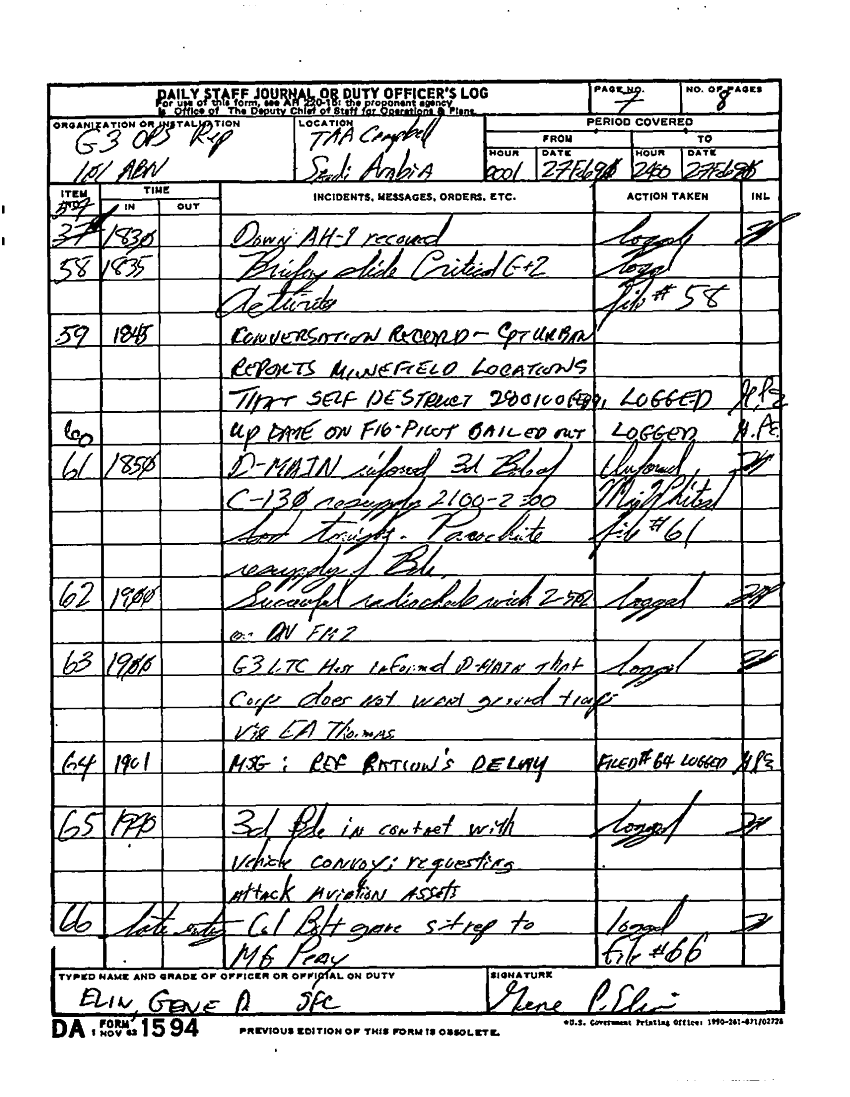 DAILY STAFF JOURNAL OR DUTY OFFICER'S LOG
For use of this form, see AR 220-15; the proponent agency
is Office of The Deputy Chief of Staff for Operations & Plans.
PAGE NO. 7
NO. OF PAGES 8
ORGANIZATION OR INSTALLATION
G3 OPS Rep
101 ABN
LOCATION
TAA Campbell
Saudi Arabia
PERIOD COVERED
FROM TO
HOUR DATE HOUR DATE
0001 27Feb 2400 27Feb
ITEM NO. TIME INCIDENTS, MESSAGES, ORDERS, ETC. ACTION TAKEN INL
IN OUT
37 183Ø Down AH-1 recovered logged
58 1835 Briefing slide Critical G+2 logged
Activities file # 58
59 1845 CONVERSATION RECORD - CPT URBAN
REPORTS MINEFIELD LOCATIONS
THAT SELF DESTRUCT LOGGED
60 UPDATE ON F16-PILOT BAILED OUT LOGGED
61 185Ø D-MAIN informed 3d Bde of Informed
C-13Ø resupply 2100-2300
tonight. Parachute file #61
resupply of Bde.
62 19ØØ Successful radio check with 2-502 logged
on FM 2
63 19ØØ G3 LTC informed D-MAIN that logged
Corps does not want ground troops
via EA Thomas
64 1901 MSG: REF RATION'S DELAY FILED #64 LOGGED
65 3d Bde in contact with logged
vehicle convoy; requesting
attack Aviation Assets
66 late entry Col Bolt gave sitrep to logged
MG Peay file #66
TYPED NAME AND GRADE OF OFFICER OR OFFICIAL ON DUTY
ELIN, GENE P. SFC
SIGNATURE
Gene P. Elin
DA FORM 1594
1 NOV 62
PREVIOUS EDITION OF THIS FORM IS OBSOLETE.
*U.S. Government Printing Office: 1990-261-871/02728